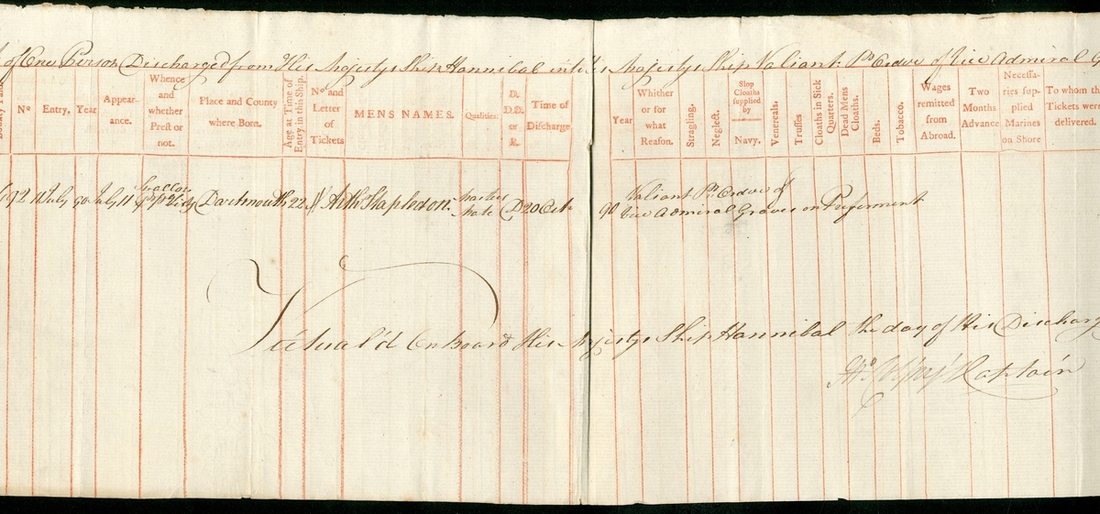 of One Person Discharged from His Majestys Ship Hannibal into His Majestys Ship Valiant Pr Order of Vice Admiral G
No
Entry,
Year
Appear-
ance.
Whence
and
whether
Prest or
not.
Place and County
where Born.
Age at Time of
Entry in this Ship.
No and
Letter
of
Tickets
MENS NAMES.
Qualities.
D.
D.D.
or
R.
Time of
Discharge
Year
Whither
or for
what
Reason.
Stragling.
Neglect.
Slop
Cloaths
supplied
by
Navy.
Venereals.
Trusses
Cloaths in Sick
Quarters.
Dead Mens
Cloaths.
Beds.
Tobacco.
Wages
remitted
from
Abroad.
Two
Months
Advance.
Necessa-
ries sup-
plied
Marines
on Shore
To whom th
Tickets were
delivered.
11 July 90 July 11 Dartmouth 22 Stapledon Masters Mate D 20 Octr 90 Valiant Pr Order of
Vice Admiral Graves on Preferment
Victual'd Onboard His Majestys Ship Hannibal the day of His Discharg
Captain